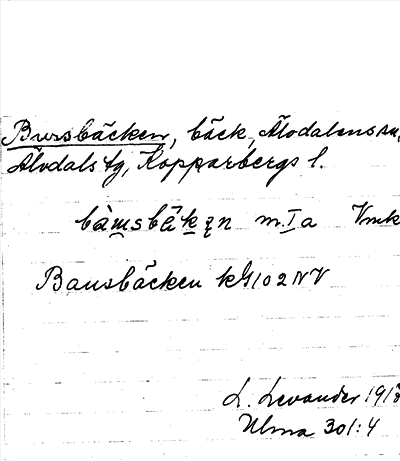 Bursbäcken, bäck, Älvdalens sn,
Älvdals tg, Kopparbergs l.
m. I a Vmk
Bausbäcken kG102NV
L. Levander 1918
Ulma 301:4